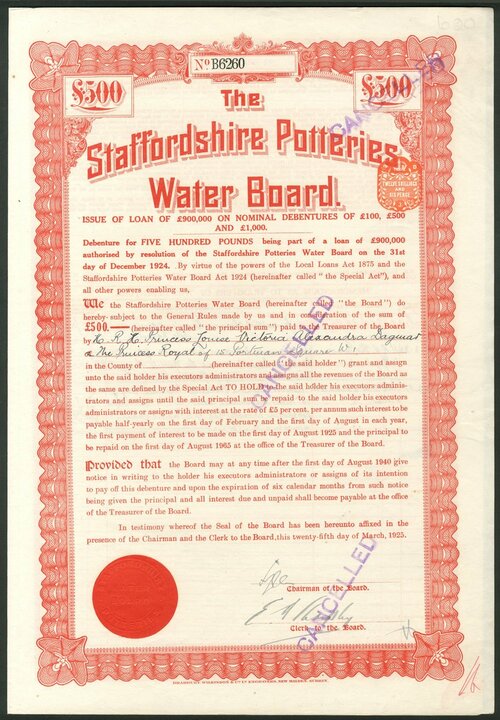 No B6260
£500
£500
The
Staffordshire Potteries
Water Board.
ISSUE OF LOAN OF £900,000 ON NOMINAL DEBENTURES OF £100, £500
AND £1,000.
TWELVE SHILLINGS
AND
SIX PENCE
Debenture for FIVE HUNDRED POUNDS being part of a loan of £900,000
authorised by resolution of the Staffordshire Potteries Water Board on the 31st
day of December 1924. By virtue of the powers of the Local Loans Act 1875 and the
Staffordshire Potteries Water Board Act 1924 (hereinafter called "the Special Act"), and
all other powers enabling us,
We the Staffordshire Potteries Water Board (hereinafter called "the Board") do
hereby subject to the General Rules made by us and in consideration of the sum of
£500.— (hereinafter called "the principal sum") paid to the Treasurer of the Board
by H. R. H. Princess Louise Victoria Alexandra Dagmar
the Princess Royal of 15 Portman Square W.1.
in the County of (hereinafter called "the said holder") grant and assign
unto the said holder his executors administrators and assigns all the revenues of the Board as
the same are defined by the Special Act TO HOLD to the said holder his executors adminis-
trators and assigns until the said principal sum is repaid to the said holder his executors
administrators or assigns with interest at the rate of £5 per cent. per annum such interest to be
payable half-yearly on the first day of February and the first day of August in each year,
the first payment of interest to be made on the first day of August 1925 and the principal to
be repaid on the first day of August 1965 at the office of the Treasurer of the Board.
Provided that the Board may at any time after the first day of August 1940 give
notice in writing to the holder his executors administrators or assigns of its intention
to pay off this debenture and upon the expiration of six calendar months from such notice
being given the principal and all interest due and unpaid shall become payable at the office
of the Treasurer of the Board.
In testimony whereof the Seal of the Board has been hereunto affixed in the
presence of the Chairman and the Clerk to the Board, this twenty-fifth day of March, 1925.
Chairman of the Board.
Clerk to the Board.
CANCELLED
CANCELLED
CANCELLED
BRADBURY, WILKINSON & Co LD ENGRAVERS, NEW MALDEN, SURREY.